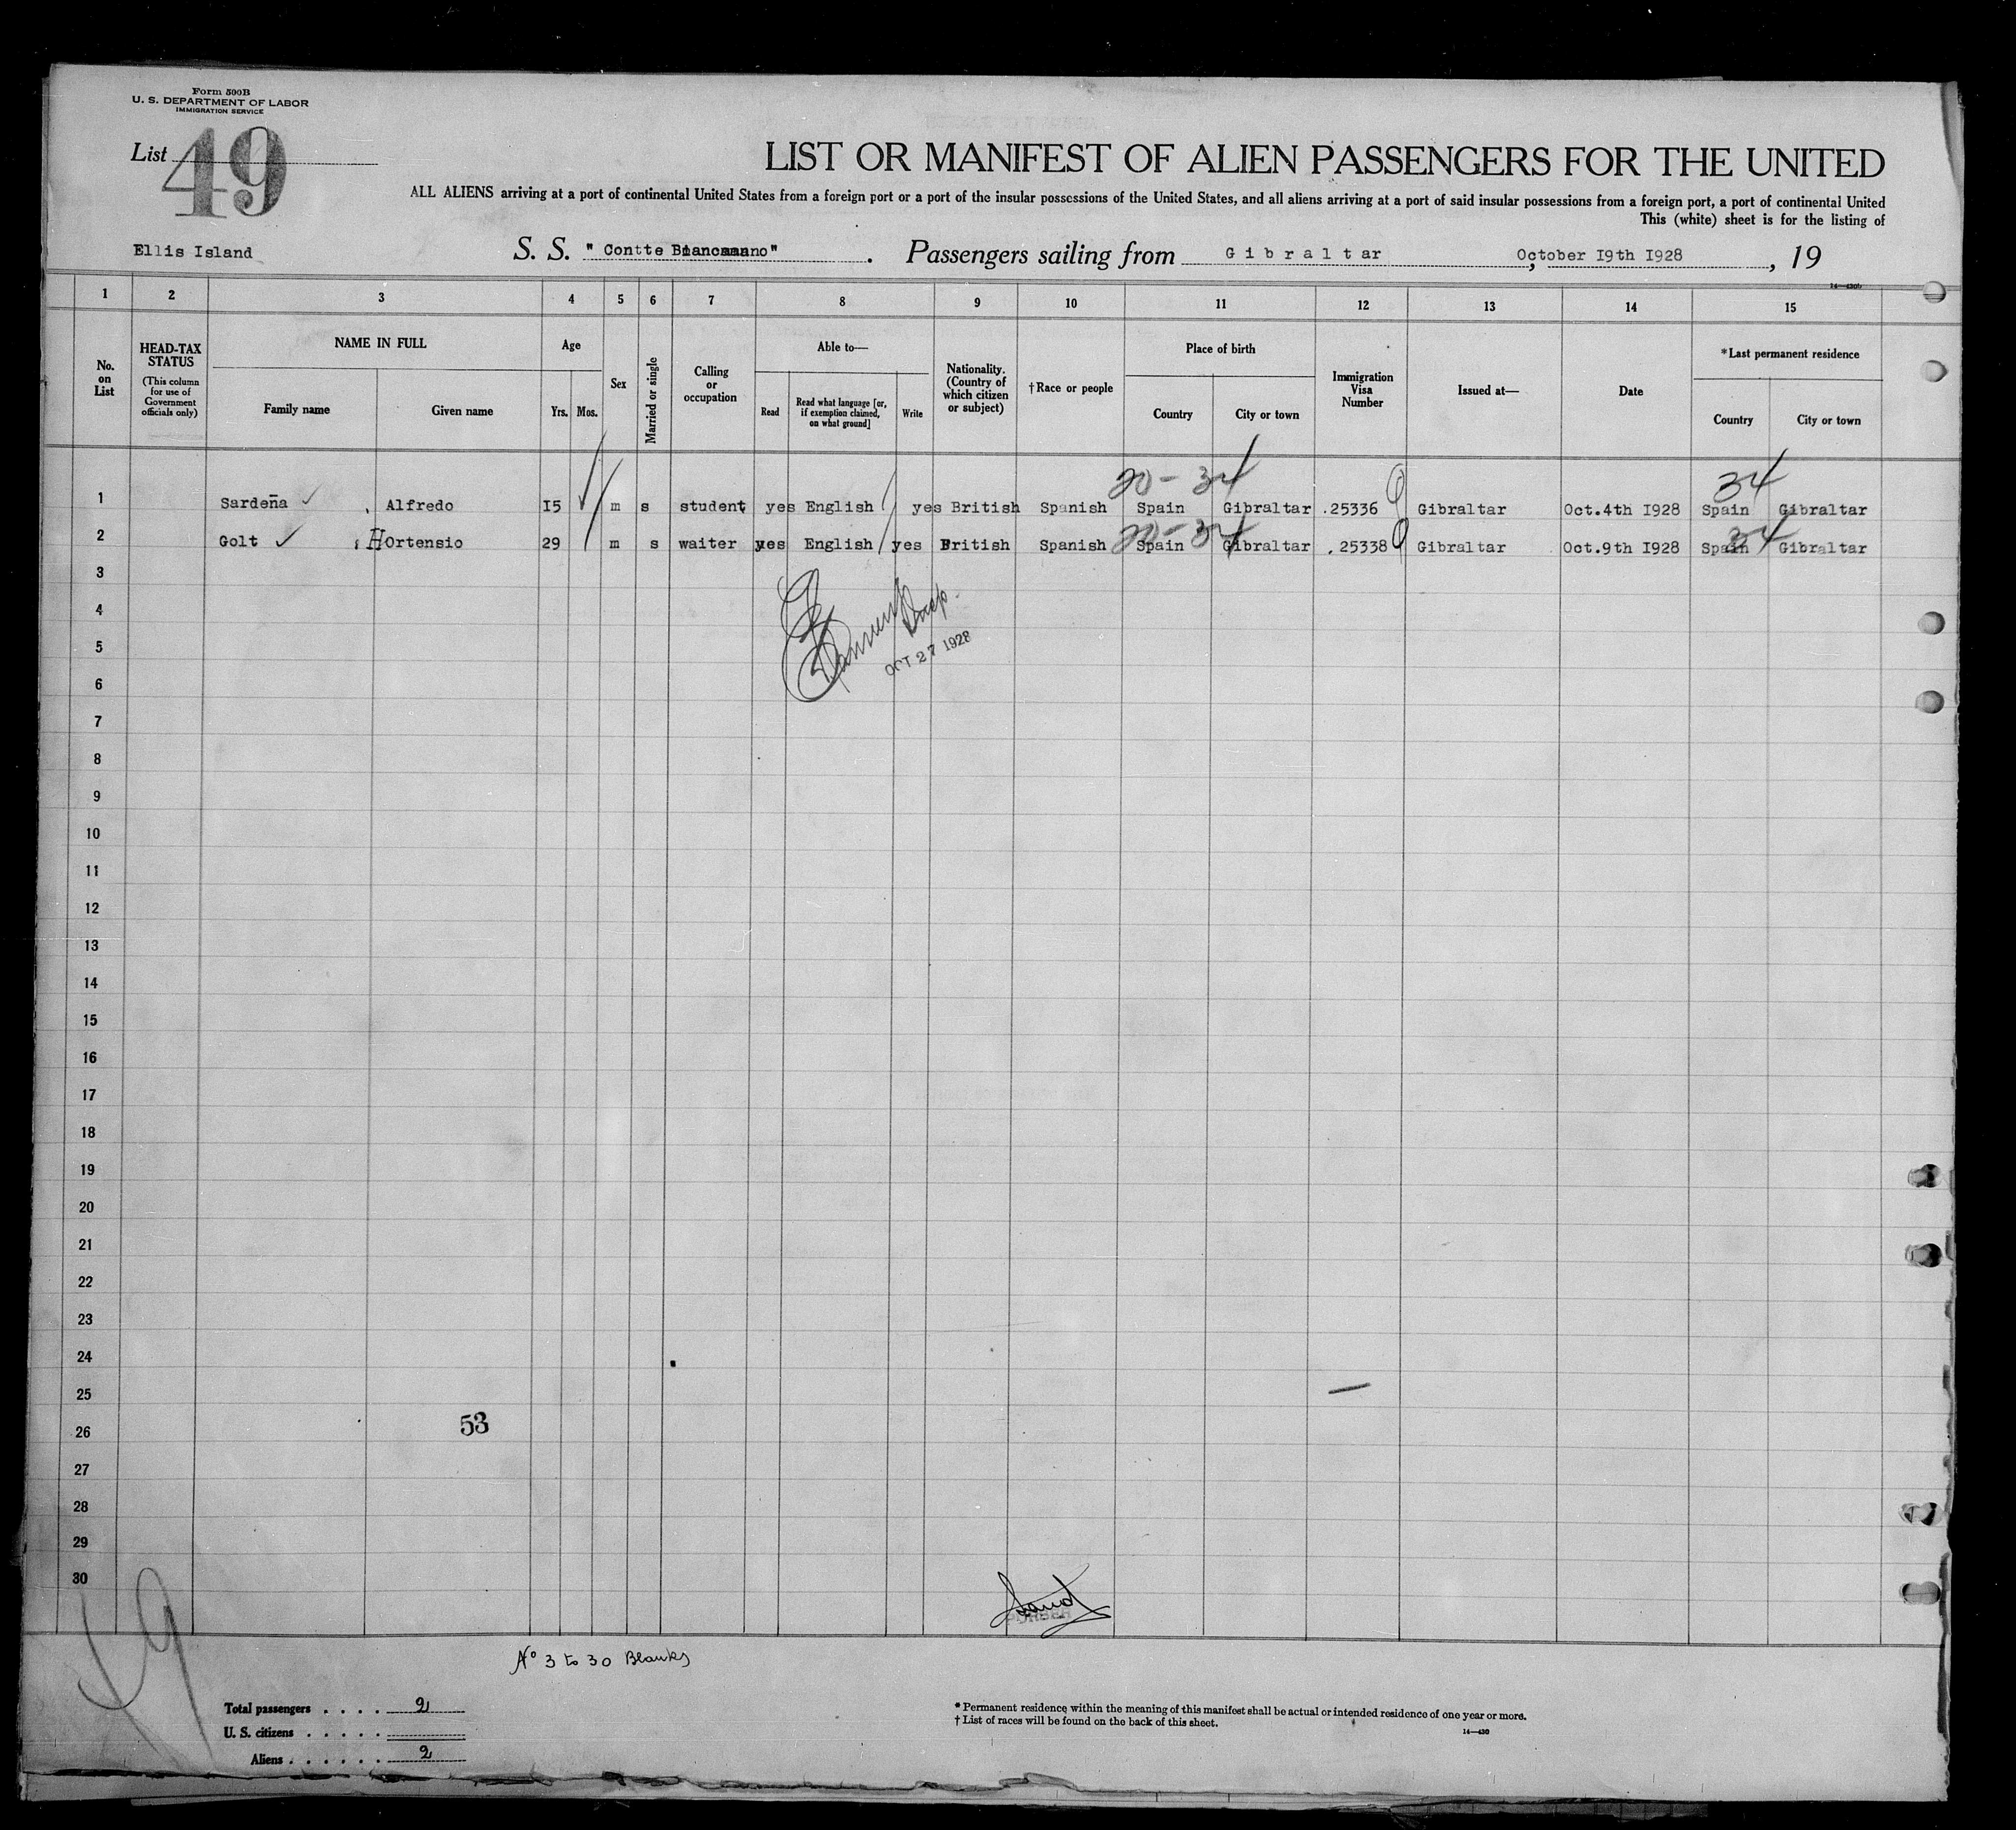 Form 500B
U. S. DEPARTMENT OF LABOR
IMMIGRATION SERVICE
List 49
LIST OR MANIFEST OF ALIEN PASSENGERS FOR THE UNITED
ALL ALIENS arriving at a port of continental United States from a foreign port or a port of the insular possessions of the United States, and all aliens arriving at a port of said insular possessions from a foreign port, a port of continental United
This (white) sheet is for the listing of
Ellis Island S. S. " Contte Biancamano" . Passengers sailing from Gibraltar , October I9th I928 , 19
14—430b
1 2 3 4 5 6 7 8 9 10 11 12 13 14 15
No. on List
HEAD-TAX STATUS
(This column for use of Government officials only)
NAME IN FULL
Family name Given name
Age
Yrs. Mos.
Sex
Married or single
Calling or occupation
Able to—
Read
Read what language [or, if exemption claimed, on what ground]
Write
Nationality. (Country of which citizen or subject)
†Race or people
Place of birth
Country City or town
Immigration Visa Number
Issued at—
Date
*Last permanent residence
Country City or town
20 - 34 34
1 Sardeña ✓ , Alfredo I5 m s student yes English yes British Spanish Spain Gibraltar .25336 Gibraltar Oct.4th I928 Spain Gibraltar
20 - 34 34
2 Golt ✓ , Hortensio 29 m s waiter yes English yes British Spanish Spain Gibraltar . 25338 Gibraltar Oct.9th I928 Spain Gibraltar
3
4
Insp.
5
OCT 27 1928
6
7
8
9
10
11
12
13
14
15
16
17
18
19
20
21
22
23
24
25
53
26
27
28
29
30
PURSER
19
No 3 to 30 Blanks
Total passengers . . . . 2
U. S. citizens . . . . .
Aliens . . . . . . 2
* Permanent residence within the meaning of this manifest shall be actual or intended residence of one year or more.
† List of races will be found on the back of this sheet.
14—430